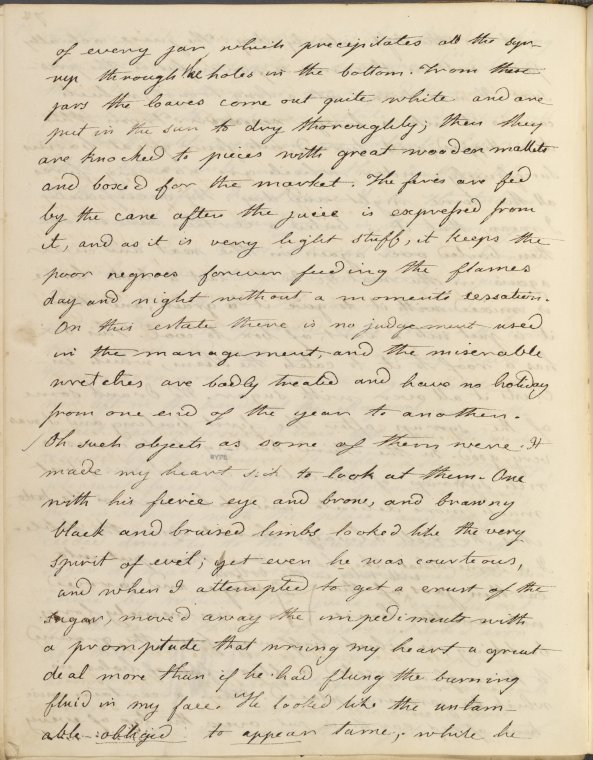 of every jar, which precipitates all the syr-
rup through the holes in the bottom. From these
jars the loaves come out quite white and are
put in the sun to dry thoroughly; then they
are knocked to pieces with great wooden mallets
and boxed for the market. The fires are fed
by the cane after the juice is expressed from
it, and as it is very light stuff, it keeps the
poor negroes forever feeding the flames
day and night without a moment's cessation.
On this estate there is no judgement used
in the management, and the miserable
wretches are badly treated and have no holiday
from one end of the year to another.
Oh such objects as some of them were. It
made my heart sick to look at them. One
with his fierce eye and brow, and brawny
black and bruised limbs looked like the very
spirit of evil; yet even he was courteous,
and when I attempted to get a crust of the
sugar, moved away the impediments with
a promptitude that wrung my heart a great
deal more than if he had flung the burning
fluid in my face. He looked like the untam-
able obliged to appear tame; while he